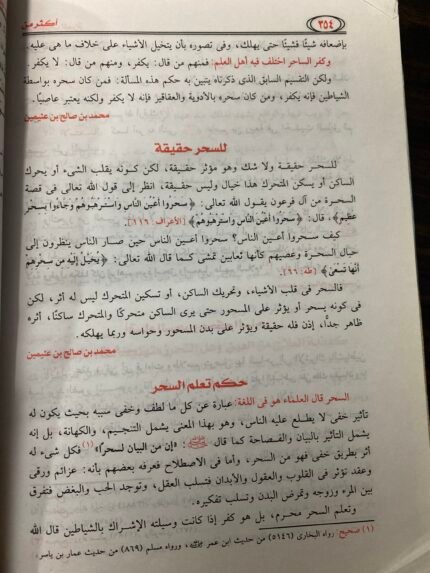 ٣٥٤
أكثر من
بإضعافه شيئًا فشيئًا حتى يهلك، وفى تصوره بأن يتخيل الأشياء على خلاف ما هى عليه.
وكفر الساحر اختلف فيه أهل العلم: فمنهم من قال: يكفر، ومنهم من قال: لا يكفر.
ولكن التقسيم السابق الذى ذكرناه يتبين به حكم هذه المسألة: فمن كان سحره بواسطة
الشياطين فإنه يكفر، ومن كان سحره بالأدوية والعقاقير فإنه لا يكفر ولكنه يعتبر عاصيًا.
محمد بن صالح بن عثيمين
للسحر حقيقة
للسحر حقيقة ولا شك وهو مؤثر حقيقة، لكن كونه يقلب الشىء أو يحرك
الساكن أو يسكن المتحرك هذا خيال وليس حقيقة، انظر إلى قول الله تعالى فى قصة
السحرة من آل فرعون يقول الله تعالى: ﴿سحروا أعين الناس واسترهبوهم وجاءوا بسحر
عظيم﴾، قال: ﴿سَحَرُوا أَعْيُنَ النَّاسِ وَاسْتَرْهَبُوهُمْ﴾ [الأعراف: ١١٦].
كيف سحروا أعين الناس؟ سحروا أعين الناس حين صار الناس ينظرون إلى
حبال السحرة وعصيهم كأنها ثعابين تمشى كما قال الله تعالى: ﴿يُخَيَّلُ إِلَيْهِ مِن سِحْرِهِمْ
أَنَّهَا تَسْعَىٰ﴾ [طه: ٦٦].
فالسحر فى قلب الأشياء، وتحريك الساكن، أو تسكين المتحرك ليس له أثر، لكن
فى كونه يسحر أو يؤثر على المسحور حتى يرى الساكن متحركًا والمتحرك ساكنًا، أثره
ظاهر جدًّا، إذن فله حقيقة ويؤثر على بدن المسحور وحواسه وربما يهلكه.
محمد بن صالح بن عثيمين
حكم تعلم السحر
السحر قال العلماء هو فى اللغة: عبارة عن كل ما لطف وخفى سببه بحيث يكون له
تأثير خفى لا يطلع عليه الناس، وهو بهذا المعنى يشمل التنجيم، والكهانة، بل إنه
يشمل التأثير بالبيان والفصاحة كما قال ﷺ: «إن من البيان لسحرًا»(١) فكل شىء له
أثر بطريق خفى فهو من السحر، وأما فى الاصطلاح فعرفه بعضهم بأنه: عزائم ورقى
وعقد تؤثر فى القلوب والعقول والأبدان فتسلب العقل، وتوجد الحب والبغض فتفرق
بين المرء وزوجه وتمرض البدن وتسلب تفكيره.
وتعلم السحر محرم، بل هو كفر إذا كانت وسيلته الإشراك بالشياطين قال الله
(١) صحيح: رواه البخارى (٥١٤٦) من حديث ابن عمر، ورواه مسلم (٨٦٩) من حديث عمار بن ياسر.